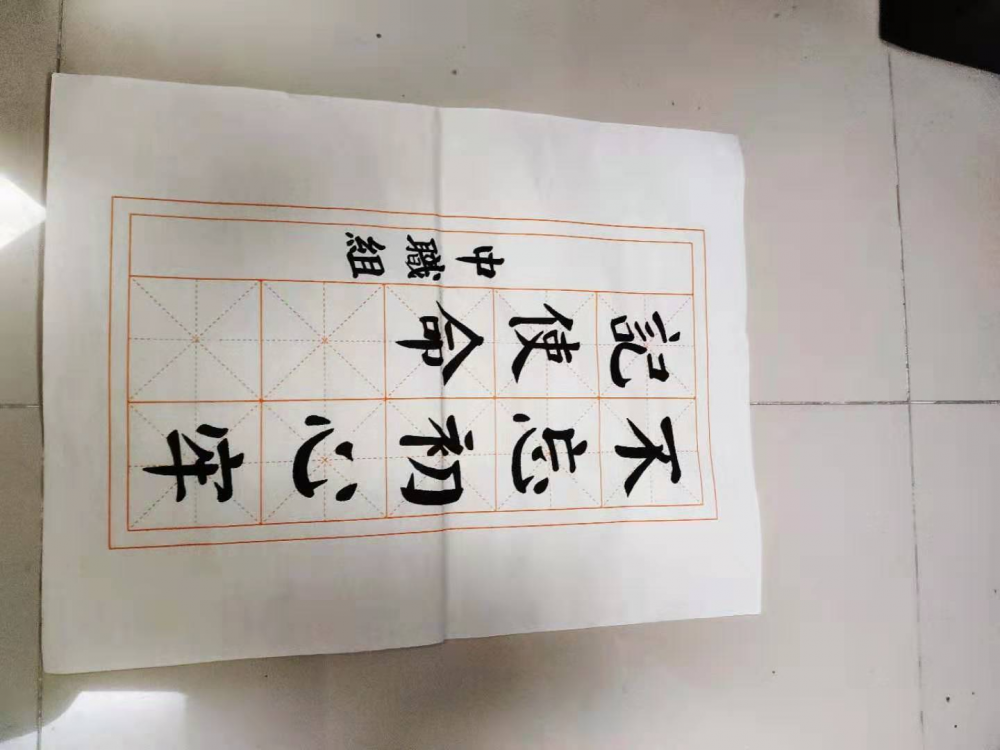 不忘初心牢
記使命
中職組